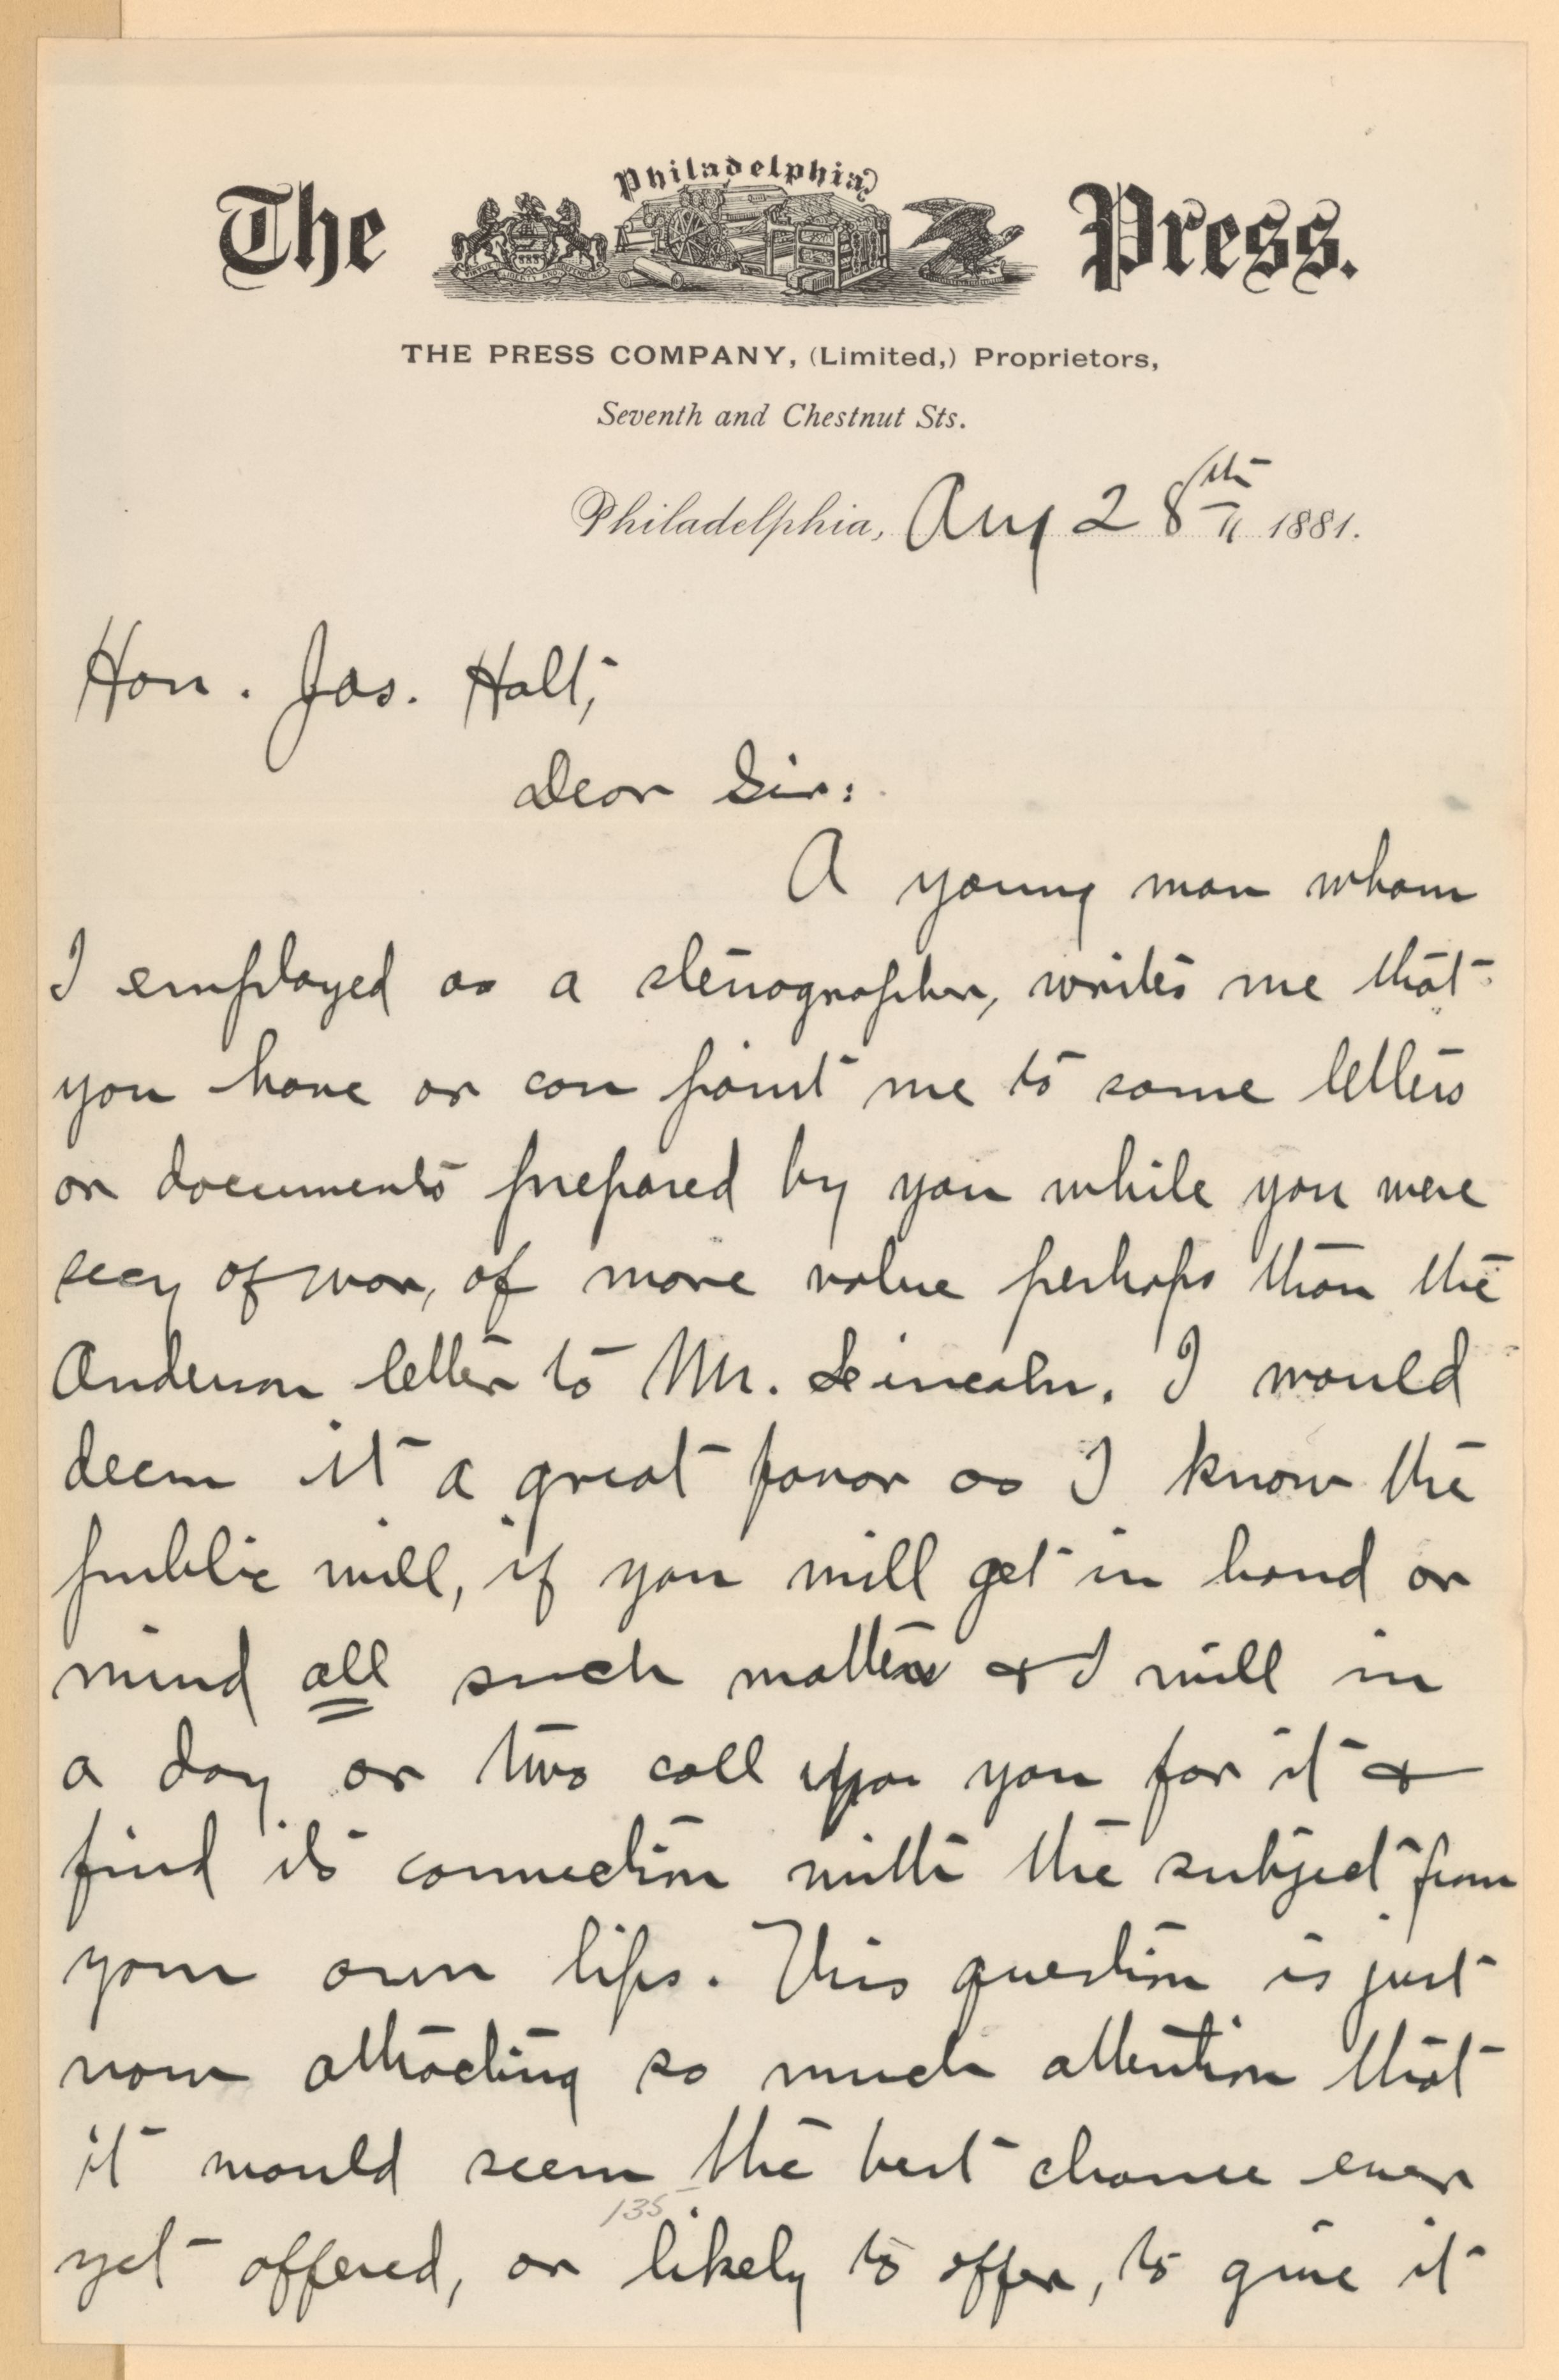 The Philadelphia Press.
THE PRESS COMPANY, (Limited,) Proprietors,
Seventh and Chestnut Sts.
Philadelphia, Aug 28th 1881.
Hon. Jos. Holt,
Dear Sir:
A young man whom
I employed as a stenographer, writes me that
you have or can point me to some letters
or documents prepared by you while you were
secy of war, of more value perhaps than the
Anderson letter to Mr. Lincoln. I would
deem it a great favor as I know the
public will, if you will get in hand or
mind all such matter & I will in
a day or two call upon you for it &
find its connection with the subject from
your own lips. This question is just
now attracting so much attention that
it would seem the best chance ever
135
yet offered, or likely to offer, to give it